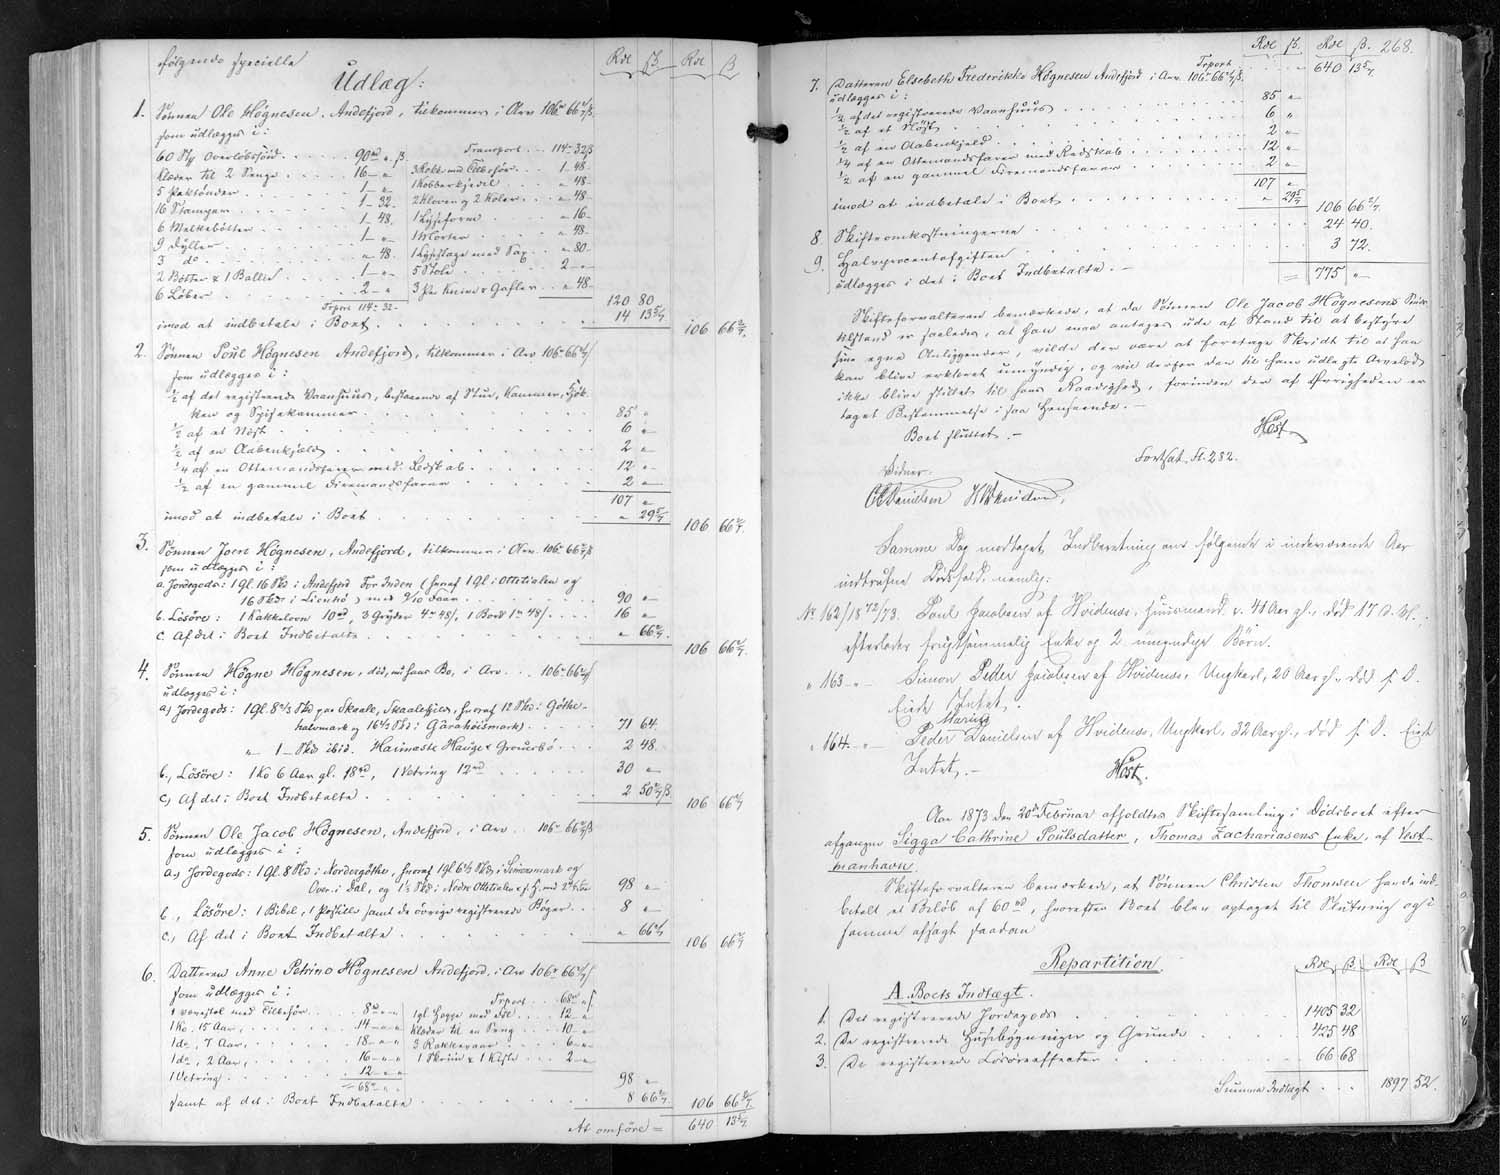 følgende specielle
Udlæg:
Rdl ß Rdl ß
1. Sønnen Ole Høgnesen, Andefjord, tilkommer i Arv 106 66 2/7 ß
som udlægges i:
60 Overlöbsföid . . . 90 rd " ß. Transport . . 114 - 32 ß
Klæder til 2 Senge . . . 16 - " 3 Rokke med Tilbehör . . 1 - 48 -
5 . . . 1 - " 1 Kobberkjedel . . " 48 -
16 Stamper . . . 1 - 32. 2 Kloven og 2 Koler . . " 48 -
6 Melkebötter . . . 1 - 48. 1 Lyseform . . . " 16 -
9 Dyller . . . 1 - " 1 Morter . . . " 48 -
3 do . . . " 48 1 med . . " 80 -
2 Bötter & 1 Ballie . . . 1 - " 5 Stole . . . 2 - "
6 Löber . . . 2 - " 3 Par Knive & Gafler . . " 48 -
Trport 114 - 32 - 120 80
imod at indbetale i Boet . . . 14 13 5/7
106 66 2/7.
2. Sønnen Poul Høgnesen Andefjord, tilkommer i Arv 106 66 2/7 ß
som udlægges i:
1/2 af det registrerede Vaanhuus, bestaaende af Stue, Kammer, Kjök-
ken og Spisekammer . . . 85 "
1/2 af et Nöst . . . 6 "
1/2 af en Aabenkjæld . . . 2 "
1/4 af en Ottemandsfarer med Redskab . . . 12 "
1/2 af en gammel Firemandsfarer . . . 2 "
107 "
imod at indbetale i Boet . . . " 29 5/7
106 66 2/7.
3. Sønnen Joen Høgnesen, Andefjord, tilkommer i Arv 106 66 2/7 ß
som udlægges i:
a. Jordegods: 1 gl. 16 Skd i Andefjord For Inden (hvoraf 1 gl. i Ottetialen og
16 Skd. i ) med 9/10 Faar . . . 90 "
b. Lösöre: 1 Kakkelovn 10 rd, 3 Gryder 4 - 48 /, 1 Bord 1 - 48 / . . . 16 "
c. Af det i Boet Indbetalte . . . " 66 2/7.
106 66 2/7.
4. Sønnen Høgne Høgnesen, död, nu hans Bo, i Arv . . 106 66 2/7 ß
udlægges i:
a) Jordegods: 1 gl. 8 2/3 Skd paa Skaale, Skaalefjeld, hvoraf 12 Skd. i Göthe-
halvmark og 16 2/3 Skd. i Gårahöismark) . . . 71 64.
" 1 - Skd ibid. Heimaste Hauge & Grouerbö . . . 2 48.
b., Lösöre: 1 Ko 6 Aar gl. 18 rd, 1 Vetring 12 rd . . . 30 "
c) Af det i Boet Indbetalte . . . 2 50 2/7 ß
106 66 2/7
5. Sønnen Ole Jacob Høgnesen, Andefjord, i Arv . . 106 66 2/7 ß
som udlægges i:
a., Jordegods: 1 gl. 8 Skd. i Nordergöthe, hvoraf 1 gl 6 2/3 Skd. i Simonsmark og
Over i Dal, og 1 1/3 Skd. i Nedre Ottetialen . . . 98 "
b., Lösöre: 1 Bibel, 1 Postille samt de övrige registrerede Böger . . . 8 "
c., Af det i Boet Indbetalte . . . " 66 2/7
106 66 2/7
6. Datteren Anne Petrine Høgnesen Andefjord, i Arv 106 66 2/7 ß
som udlægges i:
1 med Tilbehör . . . 8 rd " Trport . . 68 rd " ß
1 Ko. 15 Aar, . . . 14 - " 1 gl. Hogge med do . . 12 - "
1 do, 7 Aar, . . . 18 - " Klæder til en Seng . . 10 - "
1 do, 2 Aar, . . . 16 - " 3 Rokkevaar . . . 6 - "
1 Vetring . . . 12 - " 1 Skriin & 1 Kiste . . 2 - "
68 " 98 "
samt af det i Boet Indbetalte . . . 8 66 2/7.
106 66 2/7
At omföre = 640 13 5/7
Rdl ß. Rdl ß. 268.
Trport . . . 640 13 5/7
7. Datteren Elsebeth Frederikke Høgnesen Andefjord i Arv 106 66 2/7 ß.
udlægges i:
1/2 af det registrerede Vaanhuus . . . 85 "
1/2 af et Nöst . . . 6 "
1/2 af en Aabenkjeld . . . 2 "
1/4 af en Ottemandsfarer med Redskab . . . 12 "
1/2 af en gammel Firemandsfarer . . . 2 "
107 "
imod at indbetale i Boet . . . " 29 5/7
106 66 2/7.
8. Skifteomkostningerne . . . 24 40.
9. Halvprocentafgiften . . . 3 72.
udlægges i det i Boet Indbetalte. -
= 775 "
Skifteforvalteren bemærkede, at da Sønnen Ole Jacob Høgnesens Sinds-
tilstand er saaledes, at han maa antages ude af Stand til at bestyre
sine egne Anliggender, vilde der være at foretage Skridt til at han
kan blive erklæret umyndig, og vil derfor den til ham udlagte Arvelod
ikke blive stillet til hans Raadighed, forinden der af Øvrigheden er
taget Bestemmelse i saa Henseende. -
Boet sluttet. - Høst
Fortsat. Fl. 282.
Vidner.
Danielsen
Samme Dag modtaget Indberetning om følgende i indeværende Aar
indtrufne Dödsfald, nemlig:
Nr 162/18 72/73. Poul Jacobsen af Hvidenæs, Huusmand, v. 41 Aar gl., död 17 d. M.,
efterlader frugtsommelig Enke og 2 umyndige Börn.
" 163 - " - Simon Peder Jacobsen af Hvidenæs, Ungkarl, 20 Aar gl., död s. D.
Eied Intet.
Marius
" 164 - " - Peder Danielsen af Hvidenæs, Ungkarl, 32 Aar gl., död s. D. Eiet
Intet. - Høst.
Aar 1873 den 20de Februar afholdtes Skiftesamling i Dödsboet efter
afgangne Sigga Cathrine Poulsdatter, Thomas Zachariasens Enke, af Vest-
manhavn.
Skifteforvalteren bemærkede, at Sønnen Christen Thomsen havde ind-
betalt et Belöb af 60 rd, hvorefter Boet blev optaget til Slutning og i
samme afsagt saadan
Repartition.
Rdl ß Rdl ß
A. Boets Indtægt.
1. Det registrerede Jordegods . . . 1405 32
2. De registrerede Huusbygninger og Grunde . . . 425 48
3. De registrerede Lösöreeffecter . . . 66 68
Summa Indtægt . . . 1897 52.